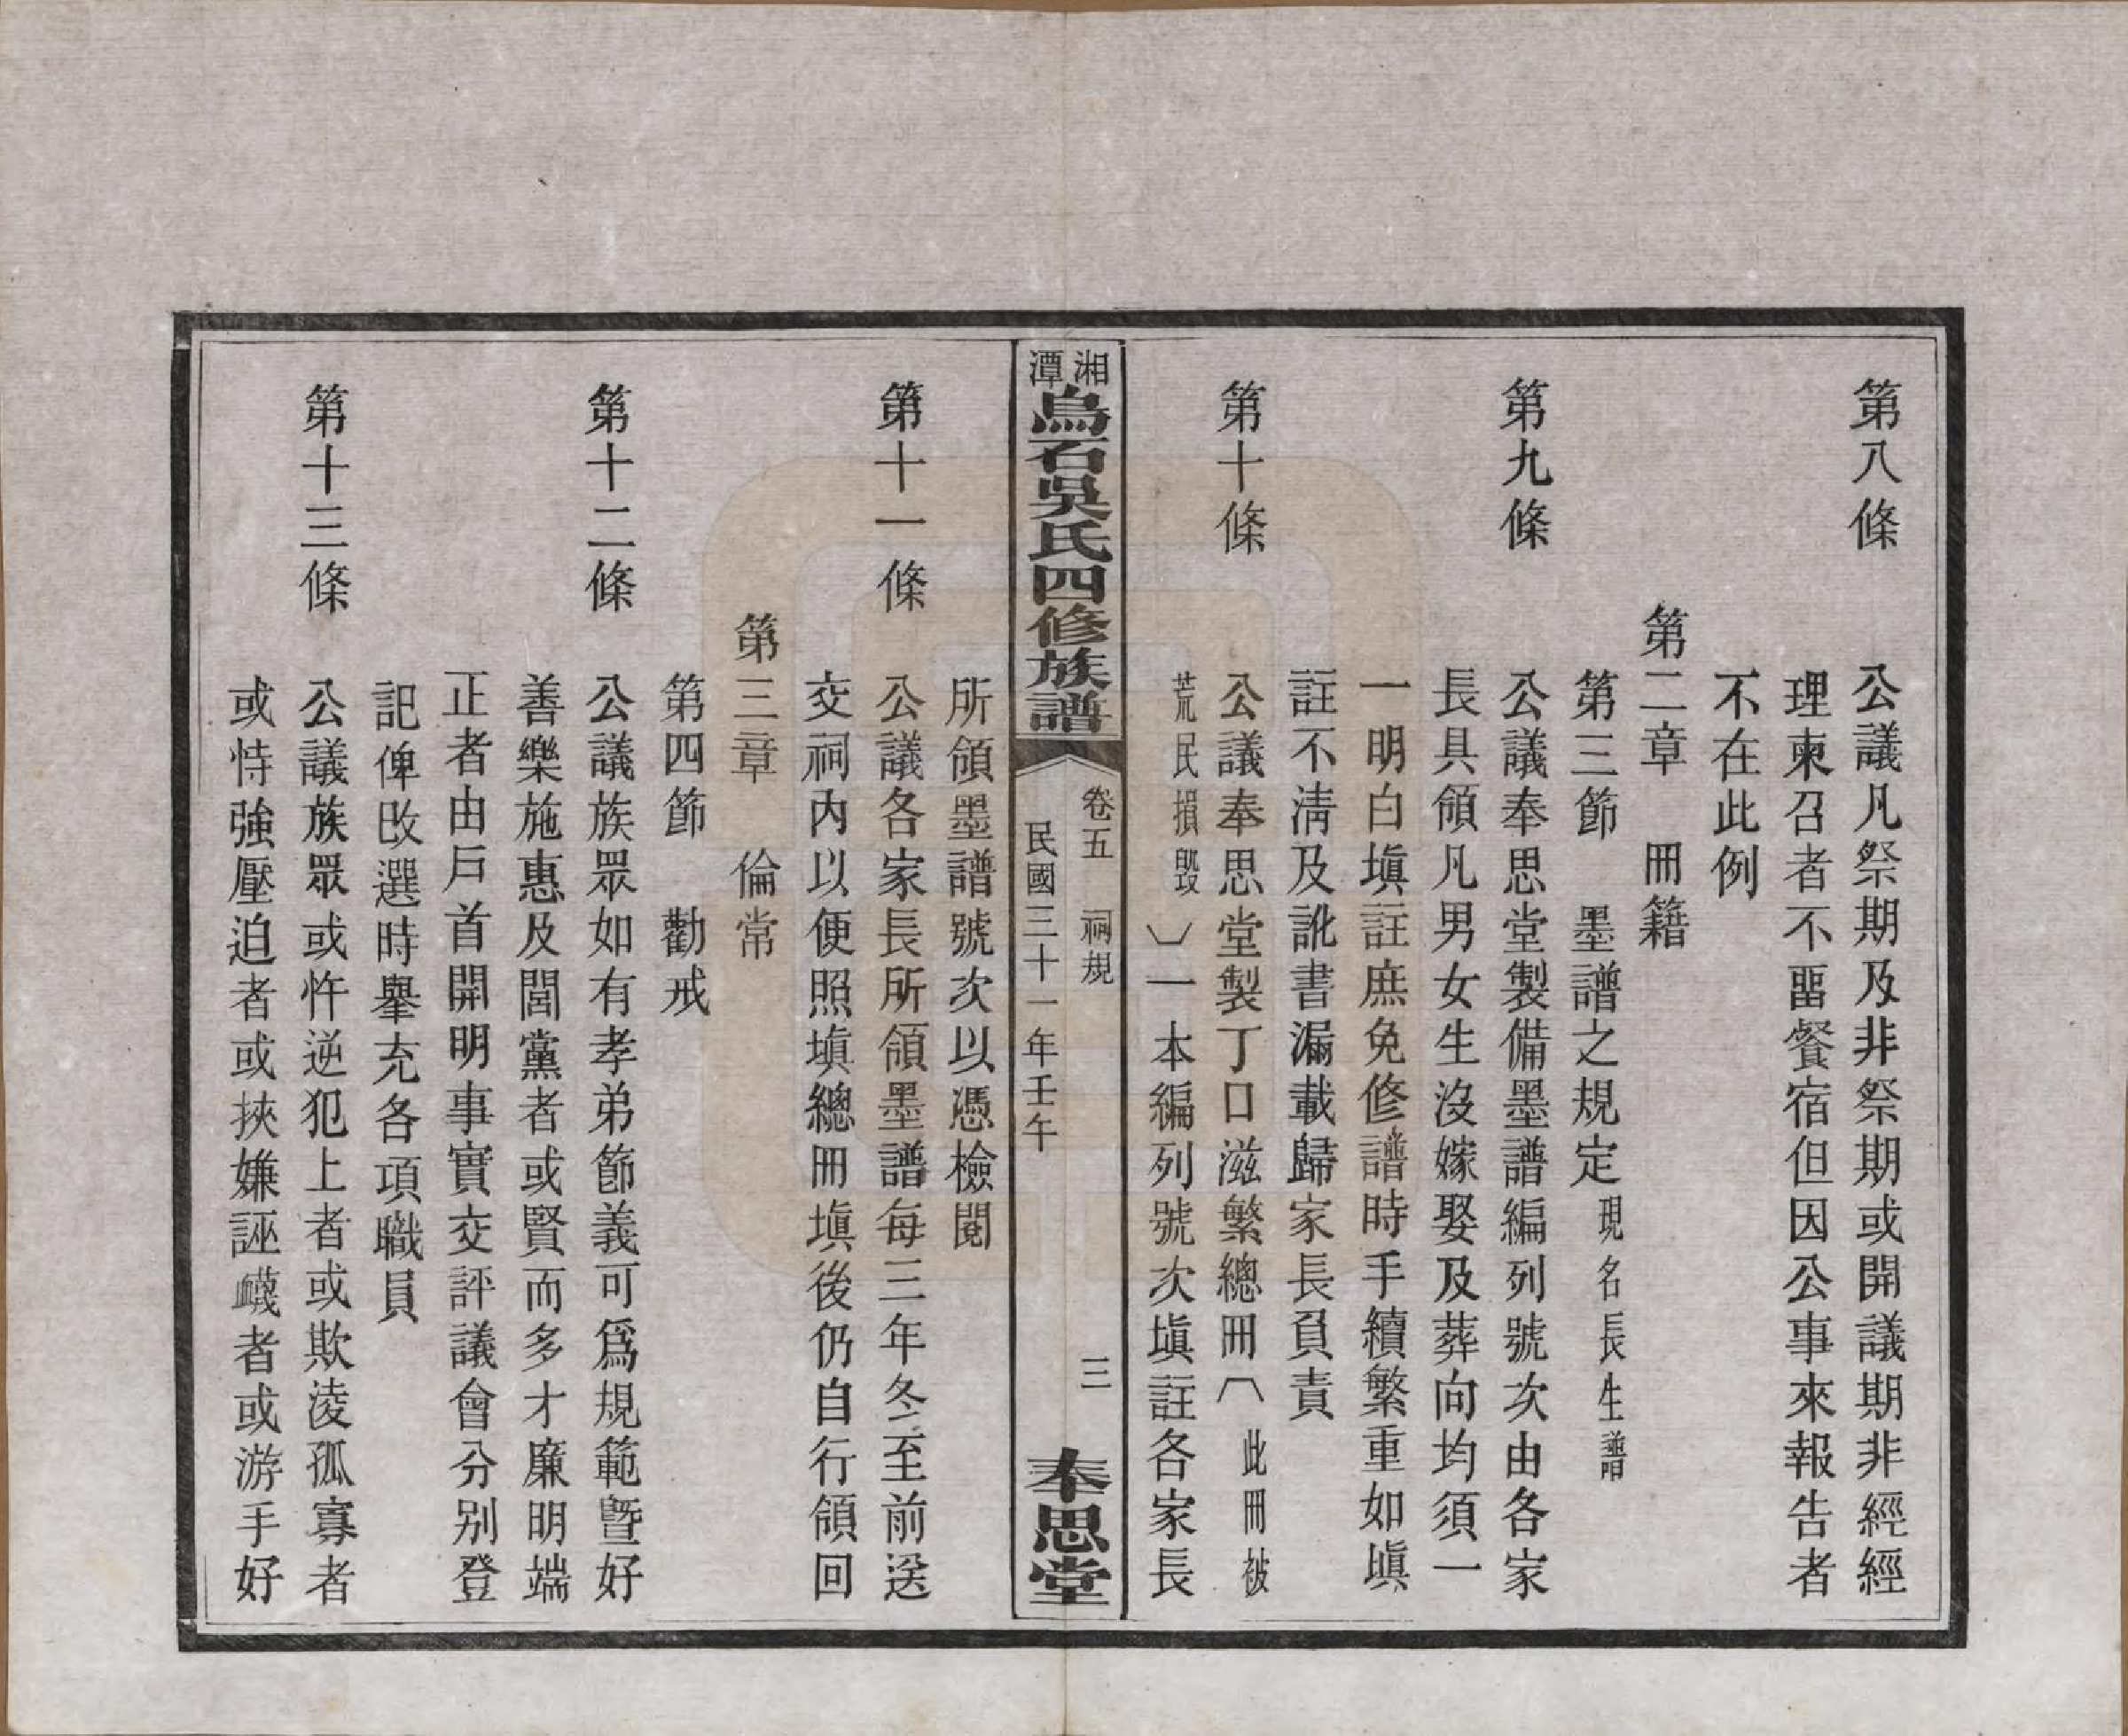 第八條　公議凡祭期及非祭期或開議期非經經
理柬召者不畱餐宿但因公事來報告者
不在此例
第二章　冊籍
第三節　墨譜之規定現名長生譜
第九條　公議奉思堂製備墨譜編列號次由各家
長具領凡男女生沒嫁娶及葬向均須一
一明白塡註庶免修譜時手續繁重如塡
註不淸及訛書漏載歸家長負責
第十條　公議奉思堂製丁口滋繁總冊︵此冊被
荒民損毀︶一本編列號次塡註各家長
湘潭烏石吳氏四修族譜
卷五　祠規　三
民國三十一年壬午
奉思堂
所領墨譜號次以憑檢閱
第十一條　公議各家長所領墨譜每三年冬至前送
交祠內以便照塡總冊塡後仍自行領回
第三章　倫常
第四節　勸戒
第十二條　公議族眾如有孝弟節義可爲規範曁好
善樂施惠及閭黨者或賢而多才廉明端
正者由戶首開明事實交評議會分別登
記俾改選時舉充各項職員
第十三條　公議族眾或忤逆犯上者或欺淩孤寡者
或恃強壓迫者或挾嫌誣衊者或游手好